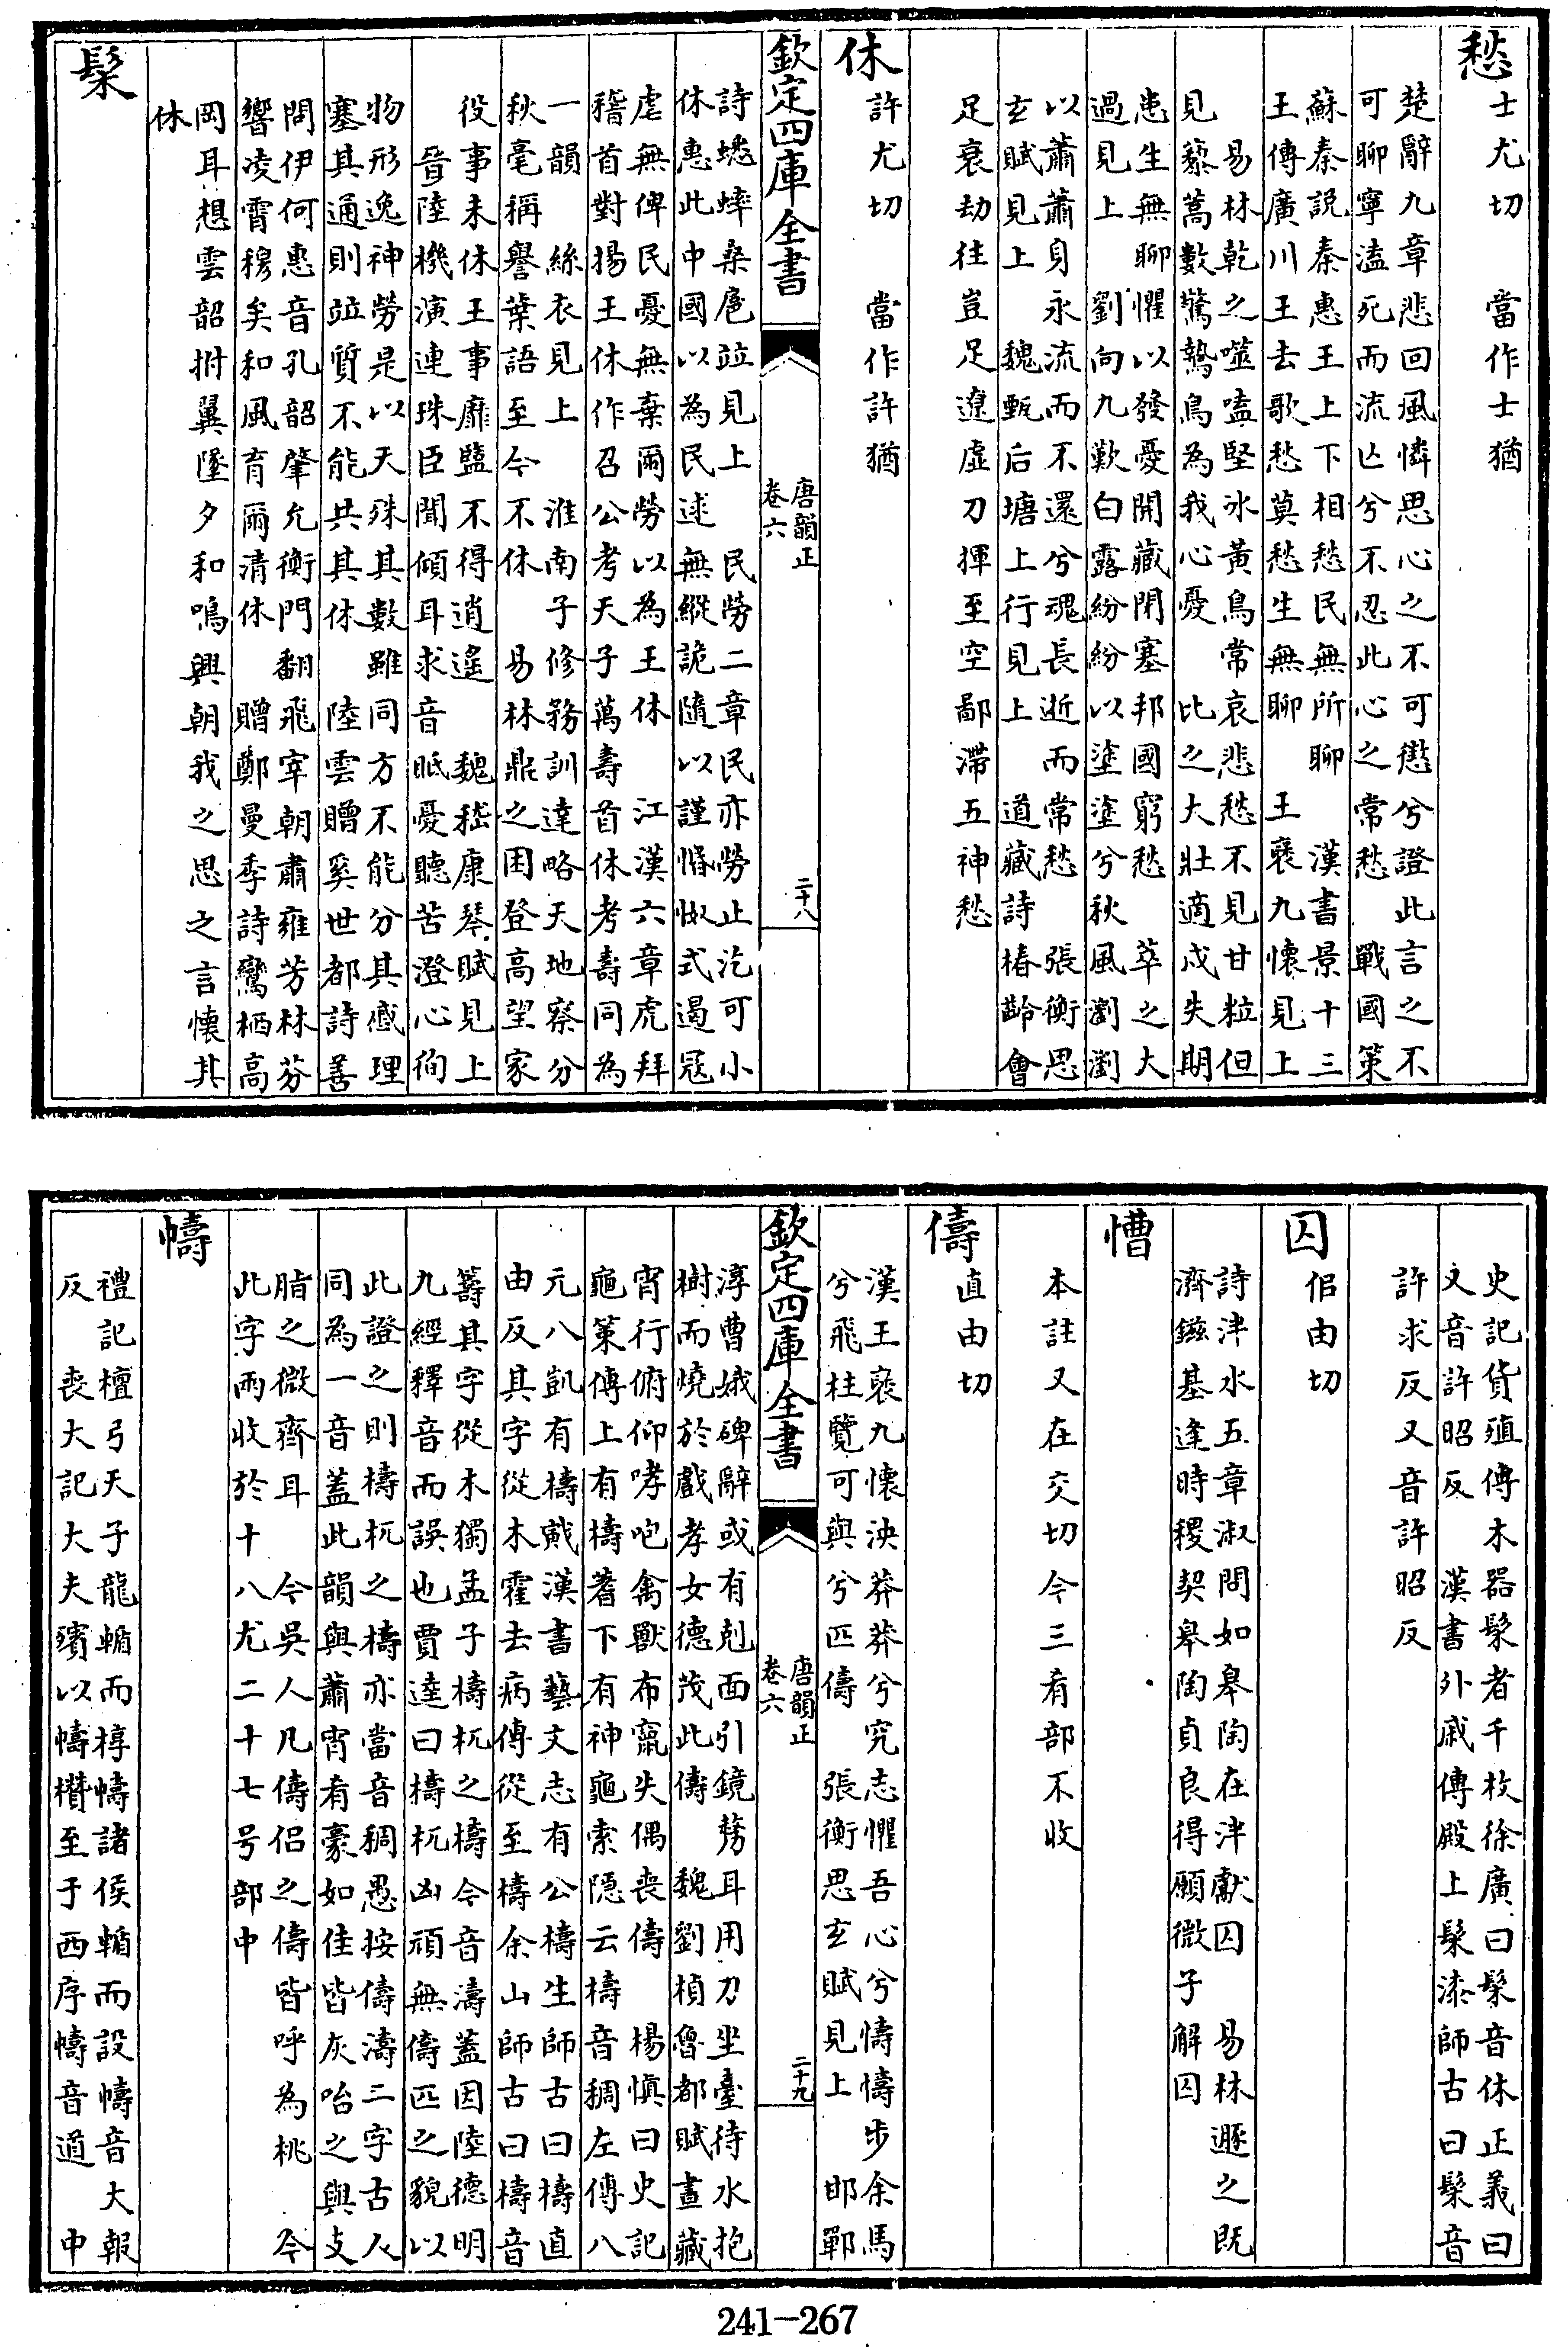 愁
士尤切　當作士猶
楚辭九章悲回風憐思心之不可懲兮證此言之不
可聊寧溘死而流亡兮不忍此心之常愁　戰國策
蘇秦說秦惠王上下相愁民無所聊　漢書景十三
王傳廣川王王去歌愁莫愁生無聊　王襃九懷見上
易林乾之噬嗑堅冰黃鳥常哀悲愁不見甘粒但
見藜蒿數驚鷙鳥為我心憂　比之大壯適戍失期
患生無聊懼以發憂開藏閉塞邦國窮愁　萃之大
過見上　劉向九歎白露紛紛以塗塗兮秋風瀏瀏
以蕭蕭身永流而不還兮魂長逝而常愁　張衡思
玄賦見上　魏甄后塘上行見上　道藏詩椿齡會
足衰劫往豈足遼虛刀揮至空鄙滯五神愁
休
許尤切　當作許猶
欽定四庫全書
唐韻正
卷六
二十八
詩蟋蟀桑扈竝見上　民勞二章民亦勞止汔可小
休惠此中國以為民逑無縱詭隨以謹惽怓式遏寇
虐無俾民憂無棄爾勞以為王休　江漢六章虎拜
稽首對揚王休作召公考天子萬壽首休考壽同為
一韻　絲衣見上　淮南子修務訓達略天地察分
秋毫稱譽葉語至今不休　易林鼎之困登高望家
役事未休王事靡盬不得逍遙　魏嵇康琴賦見上
晉陸機演連珠臣聞傾耳求音眂憂聽苦澄心徇
物形逸神勞是以天殊其數雖同方不能分其慼理
塞其通則竝質不能共其休　陸雲贈奚世都詩善
問伊何惠音孔韶肇允衡門翻飛宰朝肅雍芳林芬
響凌霄穆矣和風育爾清休　贈鄭曼季詩鸞栖高
岡耳想雲韶拊翼墜夕和鳴興朝我之思之言懷其
休
髹
史記貨殖傳木器髹者千枚徐廣曰髹音休正義曰
又音許昭反　漢書外戚傳殿上髹漆師古曰髹音
許求反又音許昭反
囚
佀由切
詩泮水五章淑問如臯陶在泮獻囚　易林遯之既
濟鎡基逢時稷契臯陶貞良得願微子解囚
慒
本註又在交切今三肴部不收
儔
直由切
漢王襃九懷泱莽莽兮究志懼吾心兮懤懤步余馬
兮飛柱覽可與兮匹儔　張衡思玄賦見上　邯鄲
欽定四庫全書
唐韻正
卷六
二十九
淳曹娥碑辭或有剋面引鏡剺耳用刀坐臺待水抱
樹而燒於戲孝女德茂此儔　魏劉楨魯都賦晝藏
宵行俯仰哮咆禽獸布竄失偶喪儔　楊慎曰史記
龜策傳上有檮蓍下有神龜索隱云檮音稠左傳八
元八凱有檮戭漢書藝文志有公檮生師古曰檮直
由反其字從木霍去病傳從至檮余山師古曰檮音
籌其字從木獨孟子檮杌之檮今音濤蓋因陸德明
九經釋音而誤也賈逵曰檮杌凶頑無儔匹之貌以
此證之則檮杌之檮亦當音稠愚按儔濤二字古人
同為一音蓋此韻與蕭宵肴豪如佳皆灰咍之與支
脂之微齊耳　今吳人凡儔侣之儔皆呼為桃　今
此字兩收於十八尤二十七号部中
幬
禮記檀弓天子龍輴而椁幬諸侯輴而設幬音大報
反　喪大記大夫殯以幬欑至于西序幬音道　中
241—267